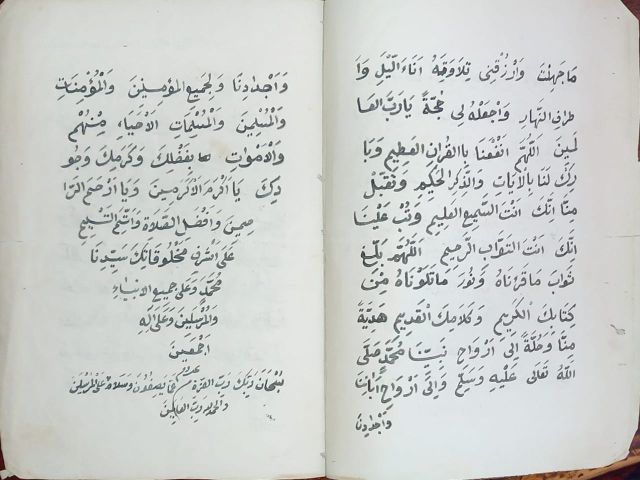 مَاجَهِلْتُ وَارْزُقْنِى تِلَاوَتَهُ اٰنَاءَ الَّيْلِ وَاَ
طْرَافَ النَّهَارِ وَاجْعَلْهُ لِى حُجَّةً يَارَبَّ الْعَا
لَمِينَ اَللّٰهُمَّ انْفَعْنَا بِاالْقُرْاٰنِ الْعَظِيمِ وَبَا
رِكْ لَنَا بِالْاٰيَاتِ وَالذِّكْرِ الْحَكِيمِ وَتَقَبَّلْ
مِنَّا اِنَّكَ اَنْتَ السَّمِيعُ الْعَلِيمُ وَتُبْ عَلَيْنَا
اِنَّكَ اَنْتَ التَّوَّابُ الرَّحِيمُ اَللّٰهُمَّ بَلِّغْ
ثَوَابَ مَاقَرَئْنَاهُ وَنُورَ مَاتَلَوْنَاهُ مِنْ
كِتَابِكَ الْكَرِيمِ وَكَلَامِكَ الْقَدِيمِ هَدِيَّةً
مِنَّا وَصِلَةً اِلَى اَرْوَاحِ نَبِيِّنَا مُحَمَّدٍ صَلَّى
اللّٰهُ تَعَالَى عَلَيْهِ وَسَلَّمَ وَاِلَى اَرْوَاحِ اٰبَائِنَا
وَاَجْدَادِنَا
وَاَجْدَادِنَا وَلِجَمِيعِ الْمُؤْمِنِينَ وَالْمُؤْمِنَاتِ
وَالْمُسْلِمِينَ وَالْمُسْلِمَاتِ الْاَحْيَاءِ مِنْهُمْ
وَالْاَمْوَاتِ بِفَضْلِكَ وَكَرَمِكَ وَجُو
دِكَ يَااَكْرَمَ الْاَكْرَمِينَ وَيَااَرْحَمَ الرَّا
حِمِينَ وَاَفْضَلُ الصَّلَاةِ وَاَتَمُّ التَّسْلِيمِ
عَلَى اَشْرَفِ مَخْلُوقَاتِكَ سَيِّدِنَا
مُحَمَّدٍ وَعَلَى جَمِيعِ الْاَنْبِيَاءِ
وَالْمُرْسَلِينَ وَعَلَى اٰلِهِ
اَجْمَعِينَ
سُبْحَانَ رَبِّكَ رَبِّ الْعِزَّةِ عَمَّا يَصِفُونَ وَسَلَامٌ عَلَى الْمُرْسَلِينَ
وَالْحَمْدُ لِلّٰهِ رَبِّ الْعَالَمِينَ